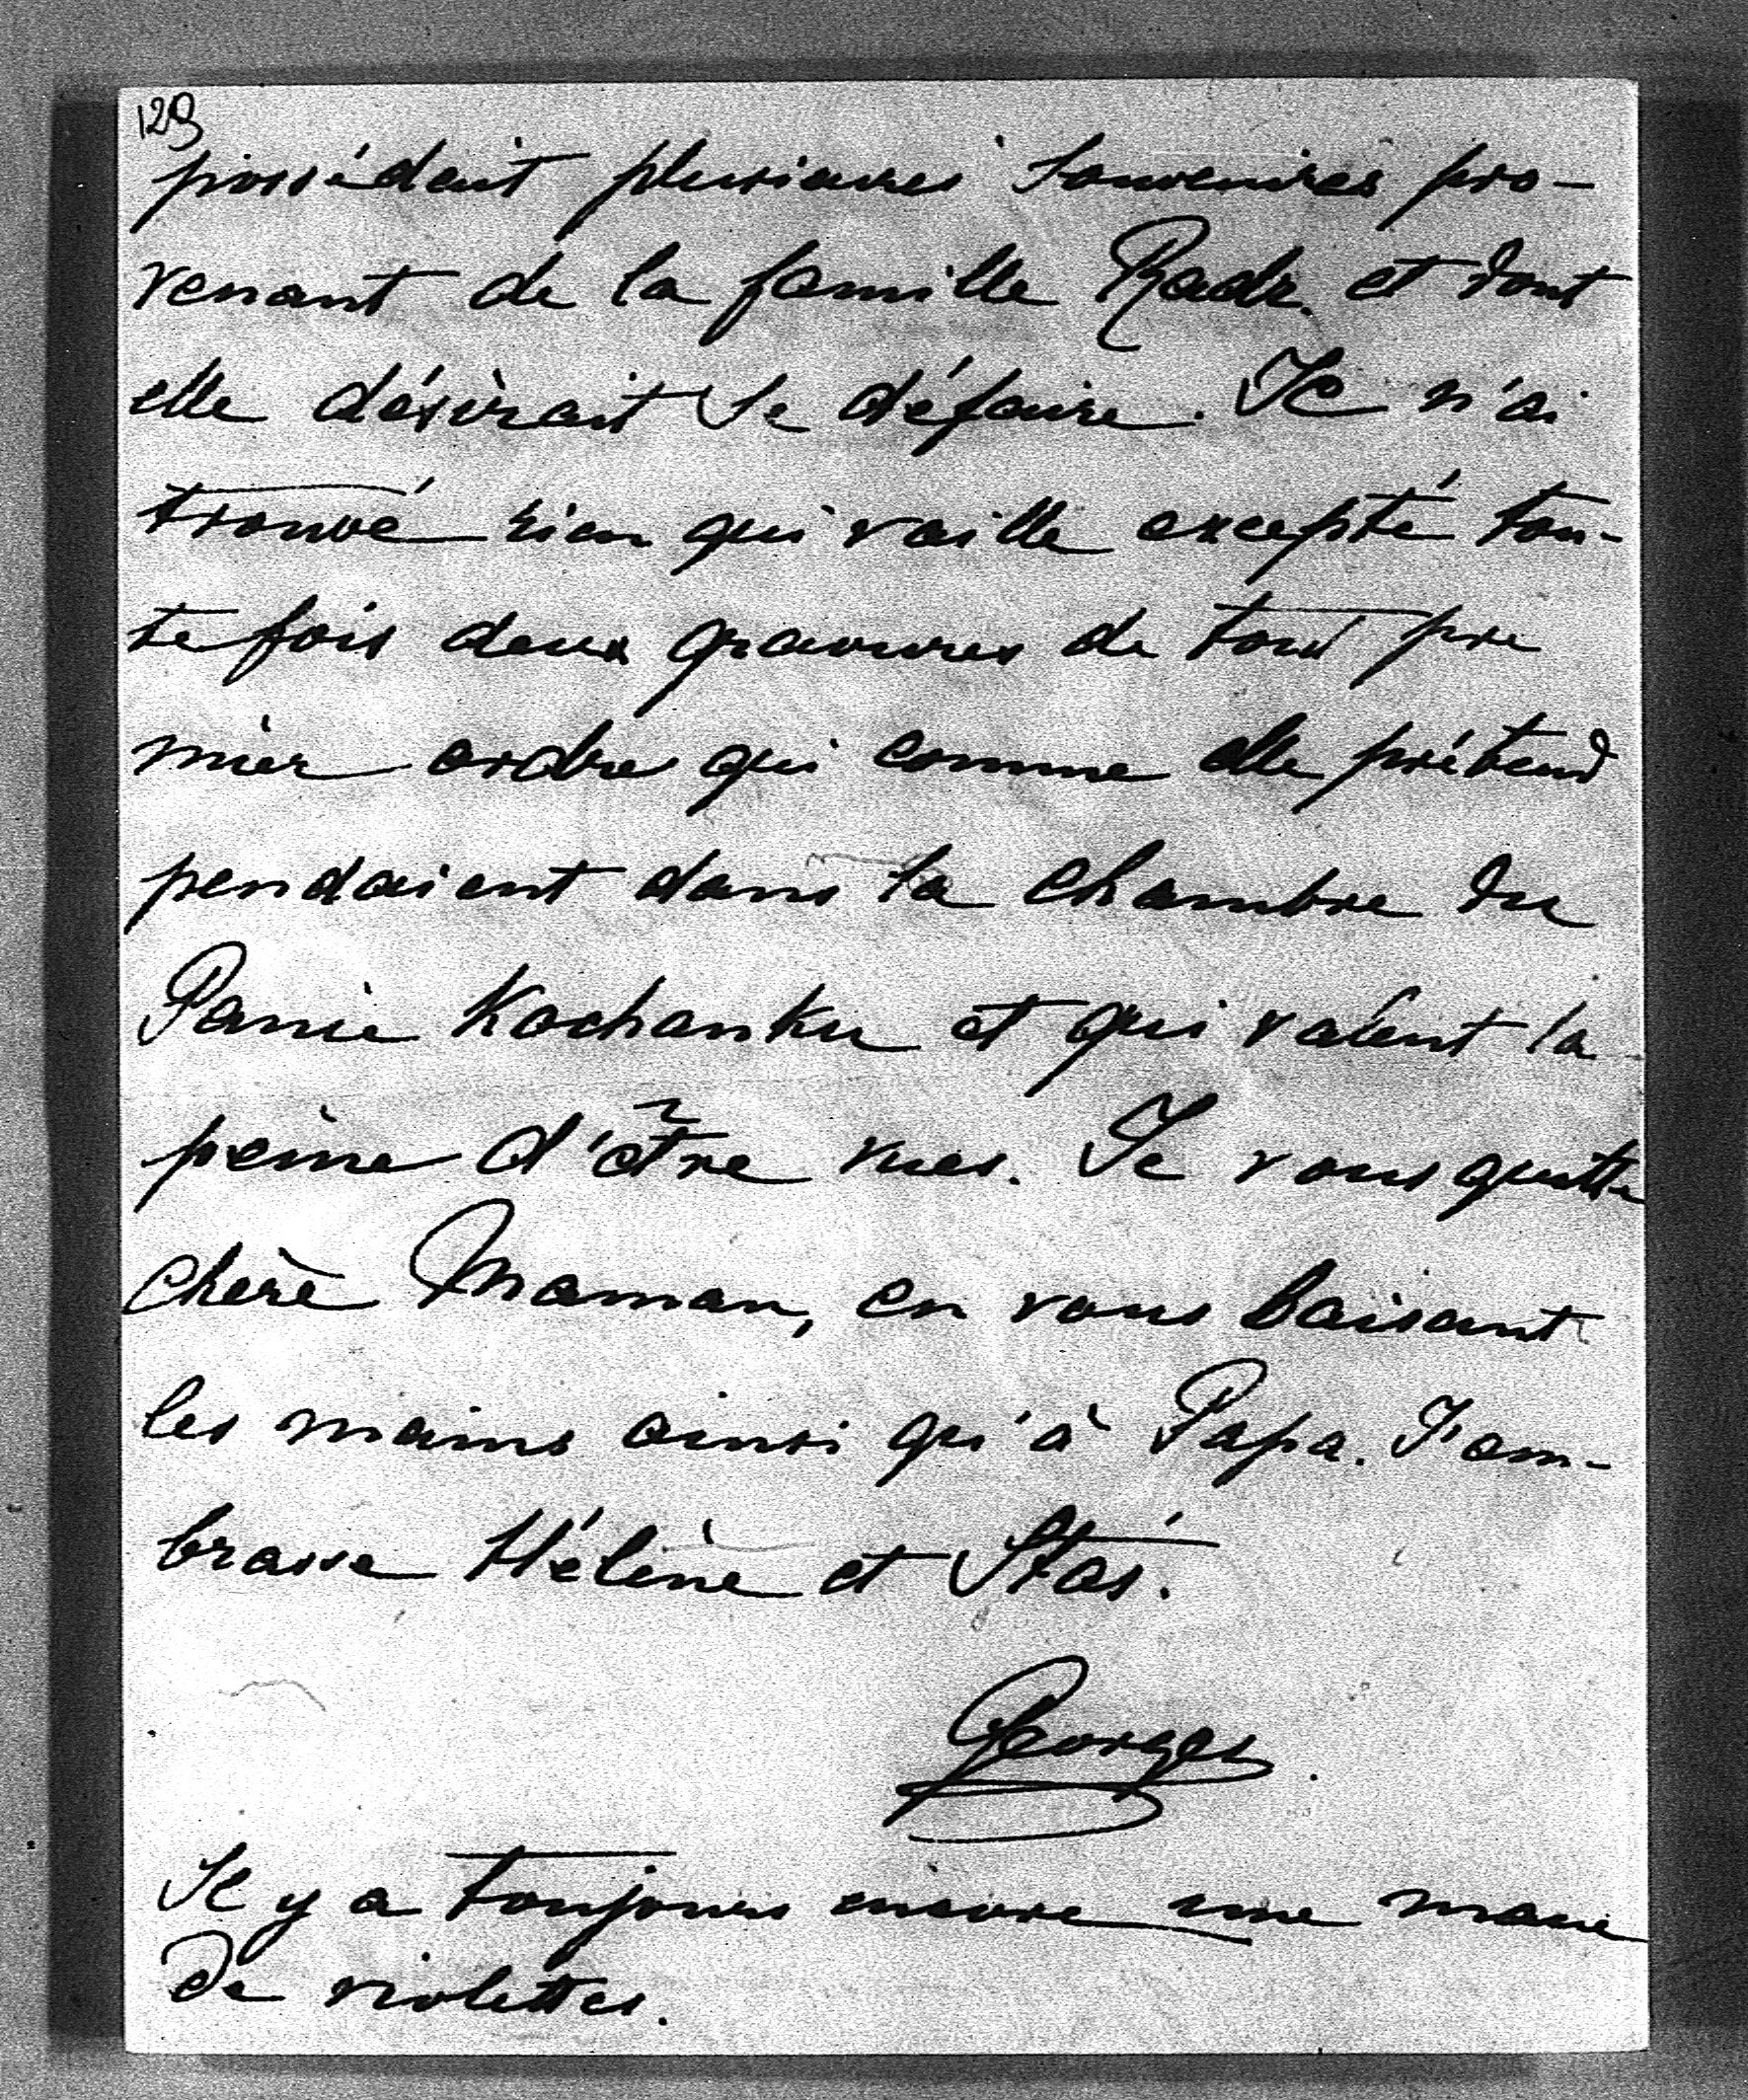 129
possédait plusieures souvenires pro-
venant de la famille Radz. et dont
elle désirait se défaire. Je n'ai
trouvé rien qui vaille excepté tou-
te fois deux gravures de tout pre
mier ordre qui comme elle prétend
pendaient dans la chambre du
Panie Kochanku et qui valent la
peine d'être vues. Je vous quitte
chère Maman, en vous baisant
les mains ainsi qu'à Papa. J'em-
brasse Hélène et Staś.
Georges.
Il y a toujours encore une
de violettes.